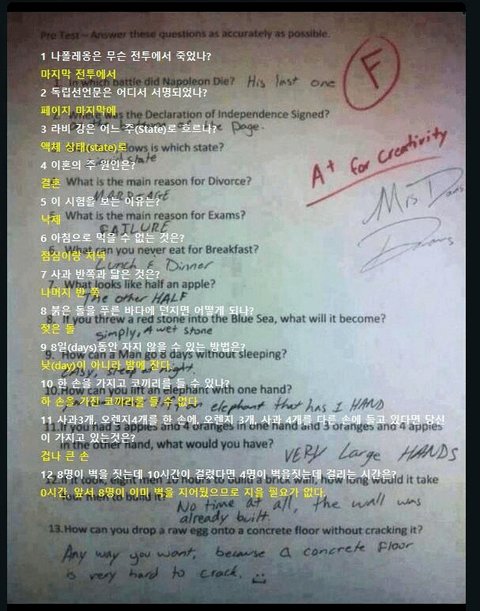 Pre Test – Answer these questions as accurately as possible.
1 나폴레옹은 무슨 전투에서 죽었나?
마지막 전투에서
1. In which battle did Napoleon Die? His last one
F
2 독립선언문은 어디서 서명되었나?
페이지 마지막에
2. Where was the Declaration of Independence Signed?
the Page.
A+ for Creativity
3 라비 강은 어느 주(State)로 흐르나?
flows in which state?
액체 상태(state)로
state
4 이혼의 주 원인은?
Mrs
결혼
4. What is the main reason for Divorce?
MARRIAGE
5 이 시험을 보는 이유는?
5. What is the main reason for Exams?
낙제
FAILURE
6 아침으로 먹을 수 없는 것은?
6. What can you never eat for Breakfast?
점심이랑 저녁
Lunch & Dinner
7 사과 반쪽과 닮은 것은?
7. What looks like half an apple?
나머지 반 쪽
The other HALF
8 붉은 돌을 푸른 바다에 던지면 어떻게 되나?
8. If you threw a red stone into the Blue Sea, what will it become?
젖은 돌
simply, A wet stone
9 8일(days)동안 자지 않을 수 있는 방법은?
9. How can a Man go 8 days without sleeping?
낮(day)이 아니라 밤에 잔다.
night.
10 한 손을 가지고 코끼리를 들 수 있나?
10. How can you lift an elephant with one hand?
하 손을 가진 코끼리를 들 수 없다.
elephant that has 1 HAND
11 사과3개, 오렌지4개를 한 손에, 오렌지 3개, 사과 4개를 다른 손에 들고 있다면 당신
11. If you had 3 apples and 4 oranges in one hand and 3 oranges and 4 apples
이 가지고 있는것은?
in the other hand, what would you have?
겁나 큰 손
VERY Large HANDS
12 8명이 벽을 짓는데 10시간이 걸렸다면 4명이 벽을짓는데 걸리는 시간은?
12. If it took eight men 10 hours to build a brick wall, how long would it take
0시간, 앞서 8명이 이미 벽을 지어뒀으므로 지을 필요가 없다.
four men to build it?
No time at all, the wall was
already built.
13. How can you drop a raw egg onto a concrete floor without cracking it?
Any way you want, because a concrete floor
is very hard to crack.